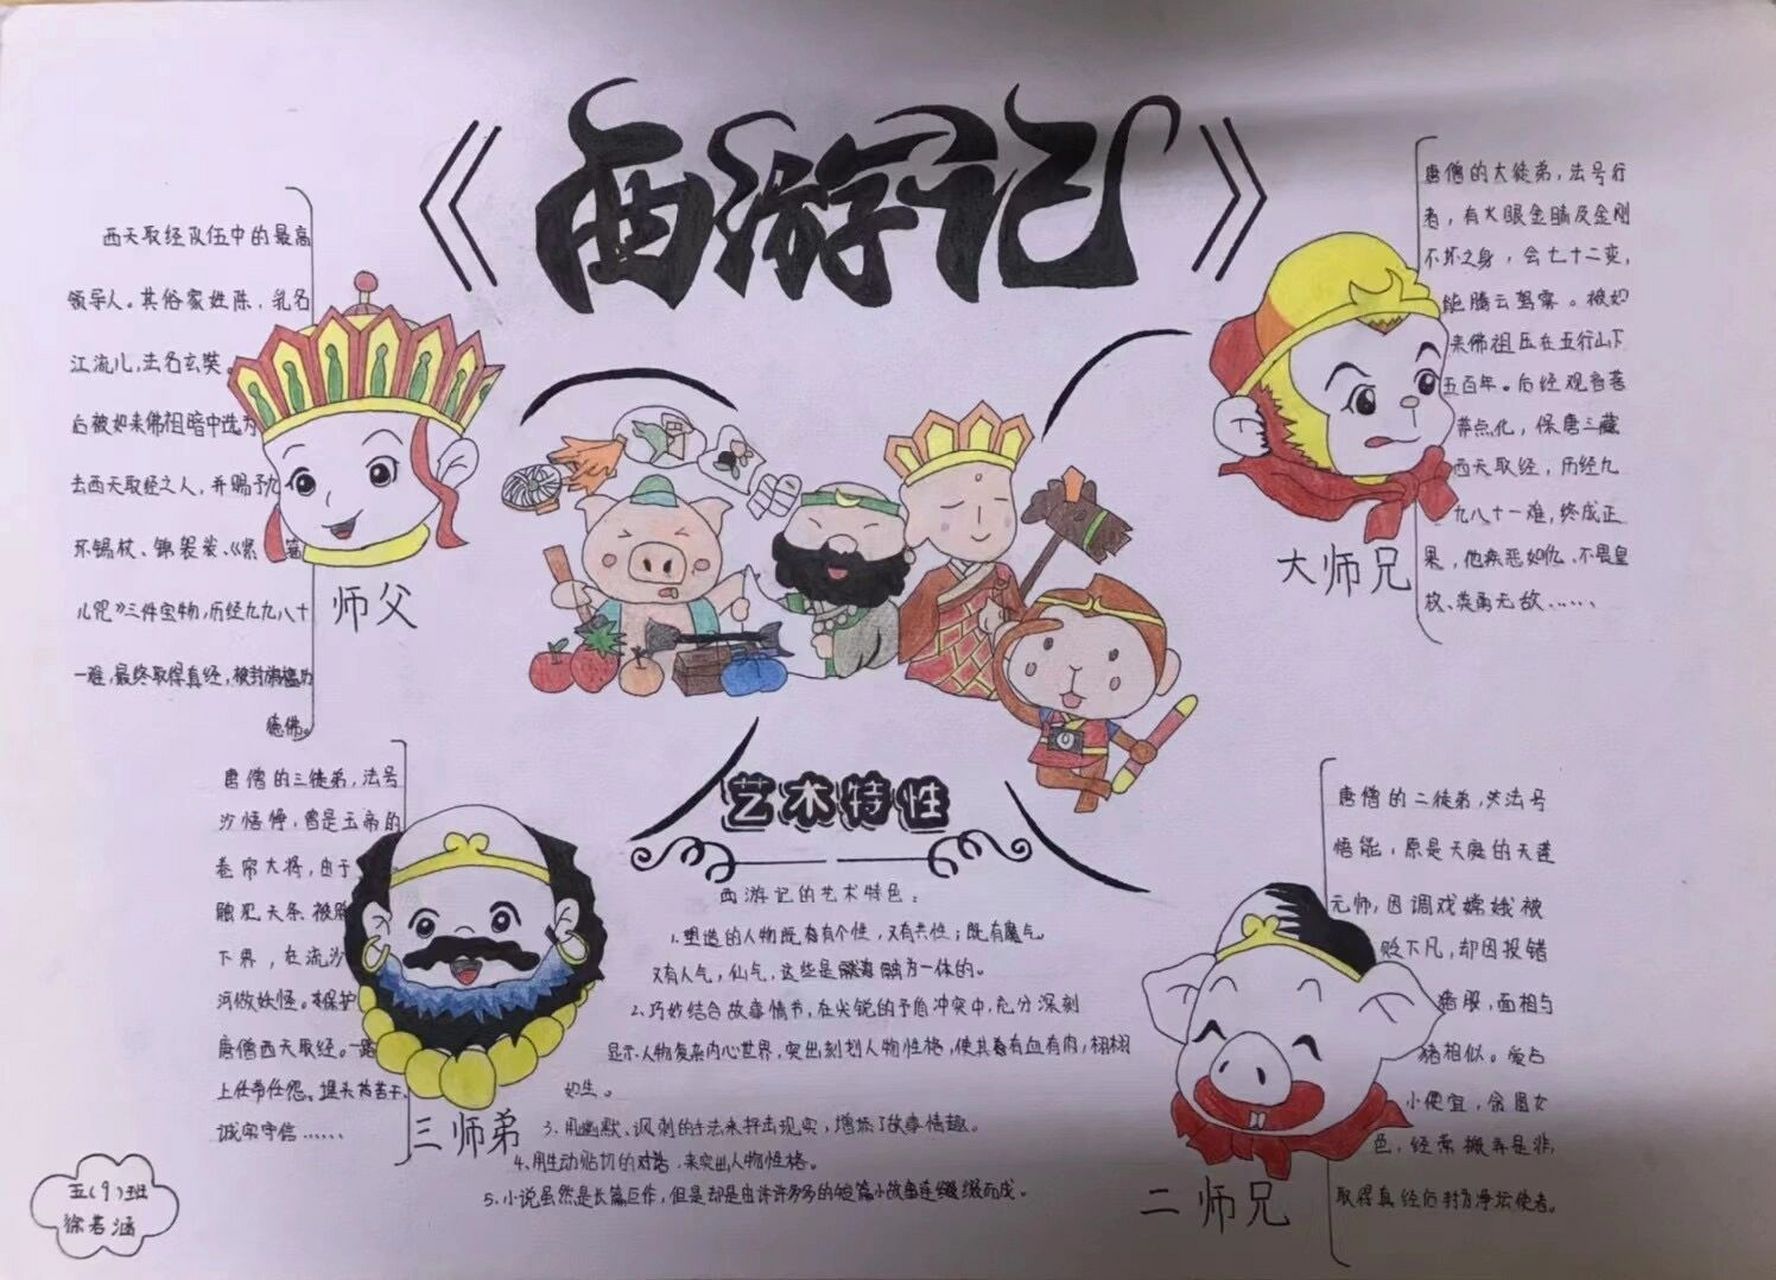 《西游记》
西天取经队伍中的最高
领导人。其俗家姓陈，乳名
江流儿，法名玄奘。
后被如来佛祖暗中选为
去西天取经之人，并赐予九
环锡杖、锦袈裟、《紧箍
儿咒》三件宝物，历经九九八十
一难，最终取得真经，被封旃檀功
德佛。
师父
唐僧的大徒弟，法号行
者，有火眼金睛及金刚
不坏之身，会七十二变，
能腾云驾雾。被如
来佛祖压在五行山下
五百年。后经观音菩
萨点化，保唐三藏
西天取经，历经九
九八十一难，终成正
果，他疾恶如仇、不畏皇
权、英勇无敌……
大师兄
唐僧的三徒弟，法号
沙悟净，曾是玉帝的
卷帘大将，由于
触犯天条被贬
下界，在流沙
河做妖怪。保护
唐僧西天取经。一路
上任劳任怨。埋头苦干、
诚实守信……
三师弟
艺术特性
西游记的艺术特色：
1.塑造的人物既有个性，又有共性；既有魔气
又有人气，仙气，这些是融为一体的。
2.巧妙结合故事情节，在尖锐的矛盾冲突中，充分深刻
显示人物复杂内心世界，突出刻划人物性格，使其有血有肉，栩栩
如生。
3.用幽默、讽刺的手法来抨击现实，增添了故事情趣。
4.用生动贴切的对话，来突出人物性格。
5.小说虽然是长篇巨作，但是却是由许许多多的短篇小故事连缀而成。
唐僧的二徒弟，法号
悟能，原是天庭的天蓬
元帅，因调戏嫦娥被
贬下凡，却因投错
猪胎，面相与
猪相似。爱占
小便宜，贪图女
色，经常搬弄是非，
取得真经后封为净坛使者。
二师兄
五(9)班
徐若涵